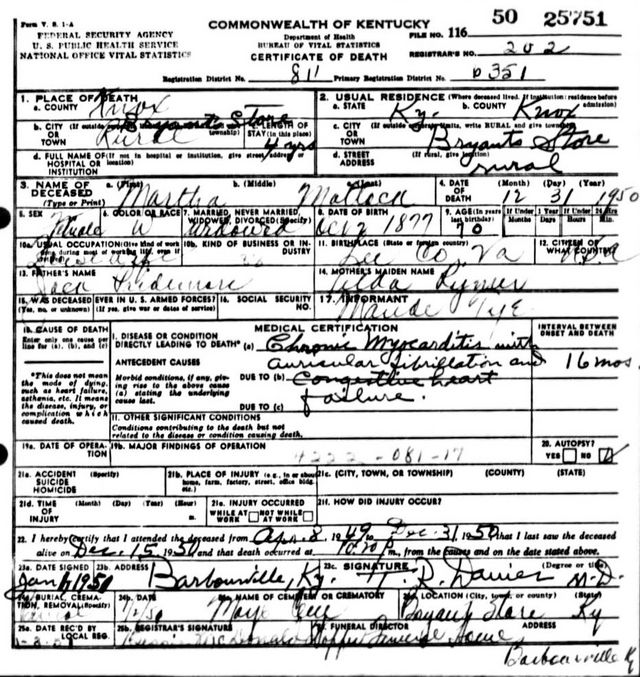 Form V. S. 1-A
FEDERAL SECURITY AGENCY
U. S. PUBLIC HEALTH SERVICE
NATIONAL OFFICE VITAL STATISTICS
COMMONWEALTH OF KENTUCKY
Department of Health
BUREAU OF VITAL STATISTICS
CERTIFICATE OF DEATH
FILE NO. 116 50 25751
REGISTRAR'S NO. 202
Registration District No. 811 Primary Registration District No.
1. PLACE OF DEATH
a. COUNTY Knox
b. CITY (If outside
OR
TOWN Rural Bryants Store
township)
c. LENGTH OF
STAY (in this place)
4 yrs
d. FULL NAME OF (If not in hospital or institution, give street address or
HOSPITAL OR
INSTITUTION
2. USUAL RESIDENCE (Where deceased lived. If institution: residence before
admission)
a. STATE Ky. b. COUNTY Knox
c. CITY (If outside corporate limits, write RURAL and give township)
OR
TOWN Bryants Store
d. STREET (If rural, give location)
ADDRESS rural
3. NAME OF
DECEASED
(Type or Print)
a. (First) Martha b. (Middle) c. (Last)
4. DATE
OF
DEATH
(Month) (Day) (Year)
12 31 1950
5. SEX
6. COLOR OR RACE
W
7. MARRIED, NEVER MARRIED,
WIDOWED, DIVORCED (Specify)
8. DATE OF BIRTH
1877
9. AGE (In years
last birthday)
70
If Under 1 Year
If Under 24 Hrs
10a. USUAL OCCUPATION (Give kind of work
done during most of working life, even if retired)
10b. KIND OF BUSINESS OR IN-
DUSTRY
11. BIRTHPLACE (State or foreign country)
Lee Co, Va
12. CITIZEN OF
WHAT COUNTRY?
13. FATHER'S NAME
Jack
14. MOTHER'S MAIDEN NAME
15. WAS DECEASED EVER IN U. S. ARMED FORCES?
(Yes, no, or unknown) (If yes, give war or dates of service)
16. SOCIAL SECURITY
NO.
17. INFORMANT
Maude Tye
18. CAUSE OF DEATH
Enter only one cause per
line for (a), (b), and (c)
*This does not mean
the mode of dying,
such as heart failure,
asthenia, etc. It means
the disease, injury, or
complication which
caused death.
MEDICAL CERTIFICATION
INTERVAL BETWEEN
ONSET AND DEATH
I. DISEASE OR CONDITION
DIRECTLY LEADING TO DEATH* (a) Chronic Myocarditis with
ANTECEDENT CAUSES auricular fibrillation and 16 mos.
Morbid conditions, if any, giv-
ing rise to the above cause
(a) stating the underlying
cause last.
DUE TO (b) Congestive heart
failure.
DUE TO (c)
11. OTHER SIGNIFICANT CONDITIONS
Conditions contributing to the death but not
related to the disease or condition causing death.
19a. DATE OF OPERA-
TION
19b. MAJOR FINDINGS OF OPERATION
4222-081-17
20. AUTOPSY?
YES NO
21a. ACCIDENT (Specify)
SUICIDE
HOMICIDE
21b. PLACE OF INJURY (e.g., in or about
home, farm, factory, street, office bldg.
etc.)
21c. (CITY, TOWN, OR TOWNSHIP) (COUNTY) (STATE)
21d. TIME (Month) (Day) (Year) (Hour)
OF
INJURY m
21e. INJURY OCCURRED
WHILE AT NOT WHILE
WORK AT WORK
21f. HOW DID INJURY OCCUR?
22. I hereby certify that I attended the deceased from Apr. 8, 1949 to Dec. 31 1950 that I last saw the deceased
alive on Dec. 15, 1950 and that death occurred at m., from the causes and on the date stated above.
23a. DATE SIGNED
23b. ADDRESS
Barbourville, Ky.
23c. SIGNATURE (Degree or title)
M.D.
24a. BURIAL, CREMA-
TION, REMOVAL (Specify)
24b. DATE
24c. NAME OF CEMETERY OR CREMATORY
24d. LOCATION (City, town, or county) (State)
Bryant Store Ky
25a. DATE REC'D BY
LOCAL REG.
25b. REGISTRAR'S SIGNATURE
FUNERAL DIRECTOR ADDRESS
Funeral Home
Barbourville K